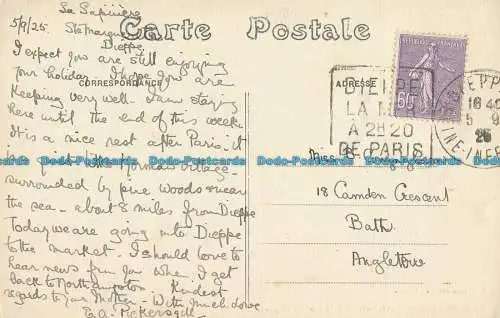 Carte Postale
La Sapinière
5/9/25. Ste Marguerite
Dieppe
I expect you are still enjoying
your holiday. I hope you are
CORRESPONDANCE
keeping very well. I am staying
here until the end of this week.
It is a nice rest after Paris. It
is a quiet little Norman village -
surrounded by pine woods & near
the sea - about 8 miles from Dieppe
Today we are going into Dieppe
to the market. I should love to
hear news from you when I get
back to Northampton. Kindest
regards to your Mother - With much love
E.A. Pickersgill
ADRESSE
60
DIEPPE
LA
A 2H20
DE PARIS
DIEPPE
18
5 9
25
SEINE-INFRE
Miss
18 Camden Crescent
Bath.
Angleterre
Dodo-Postcards Dodo-Postcards Dodo-Postcards Dodo-Postcards